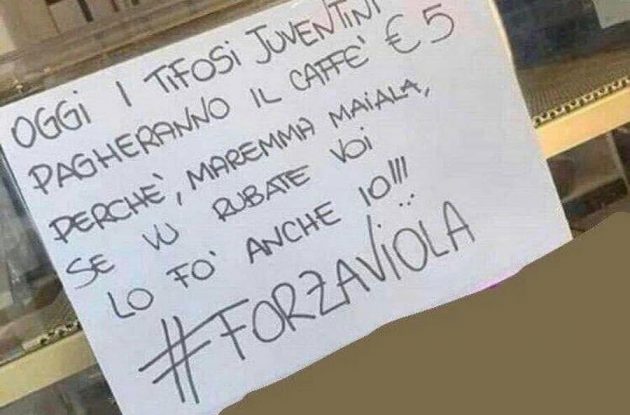 OGGI I TIFOSI JUVENTINI
PAGHERANNO IL CAFFE' € 5
PERCHE', MAREMMA MAIALA,
SE VU RUBATE VOI
LO FO' ANCHE IO!!!
#FORZAVIOLA